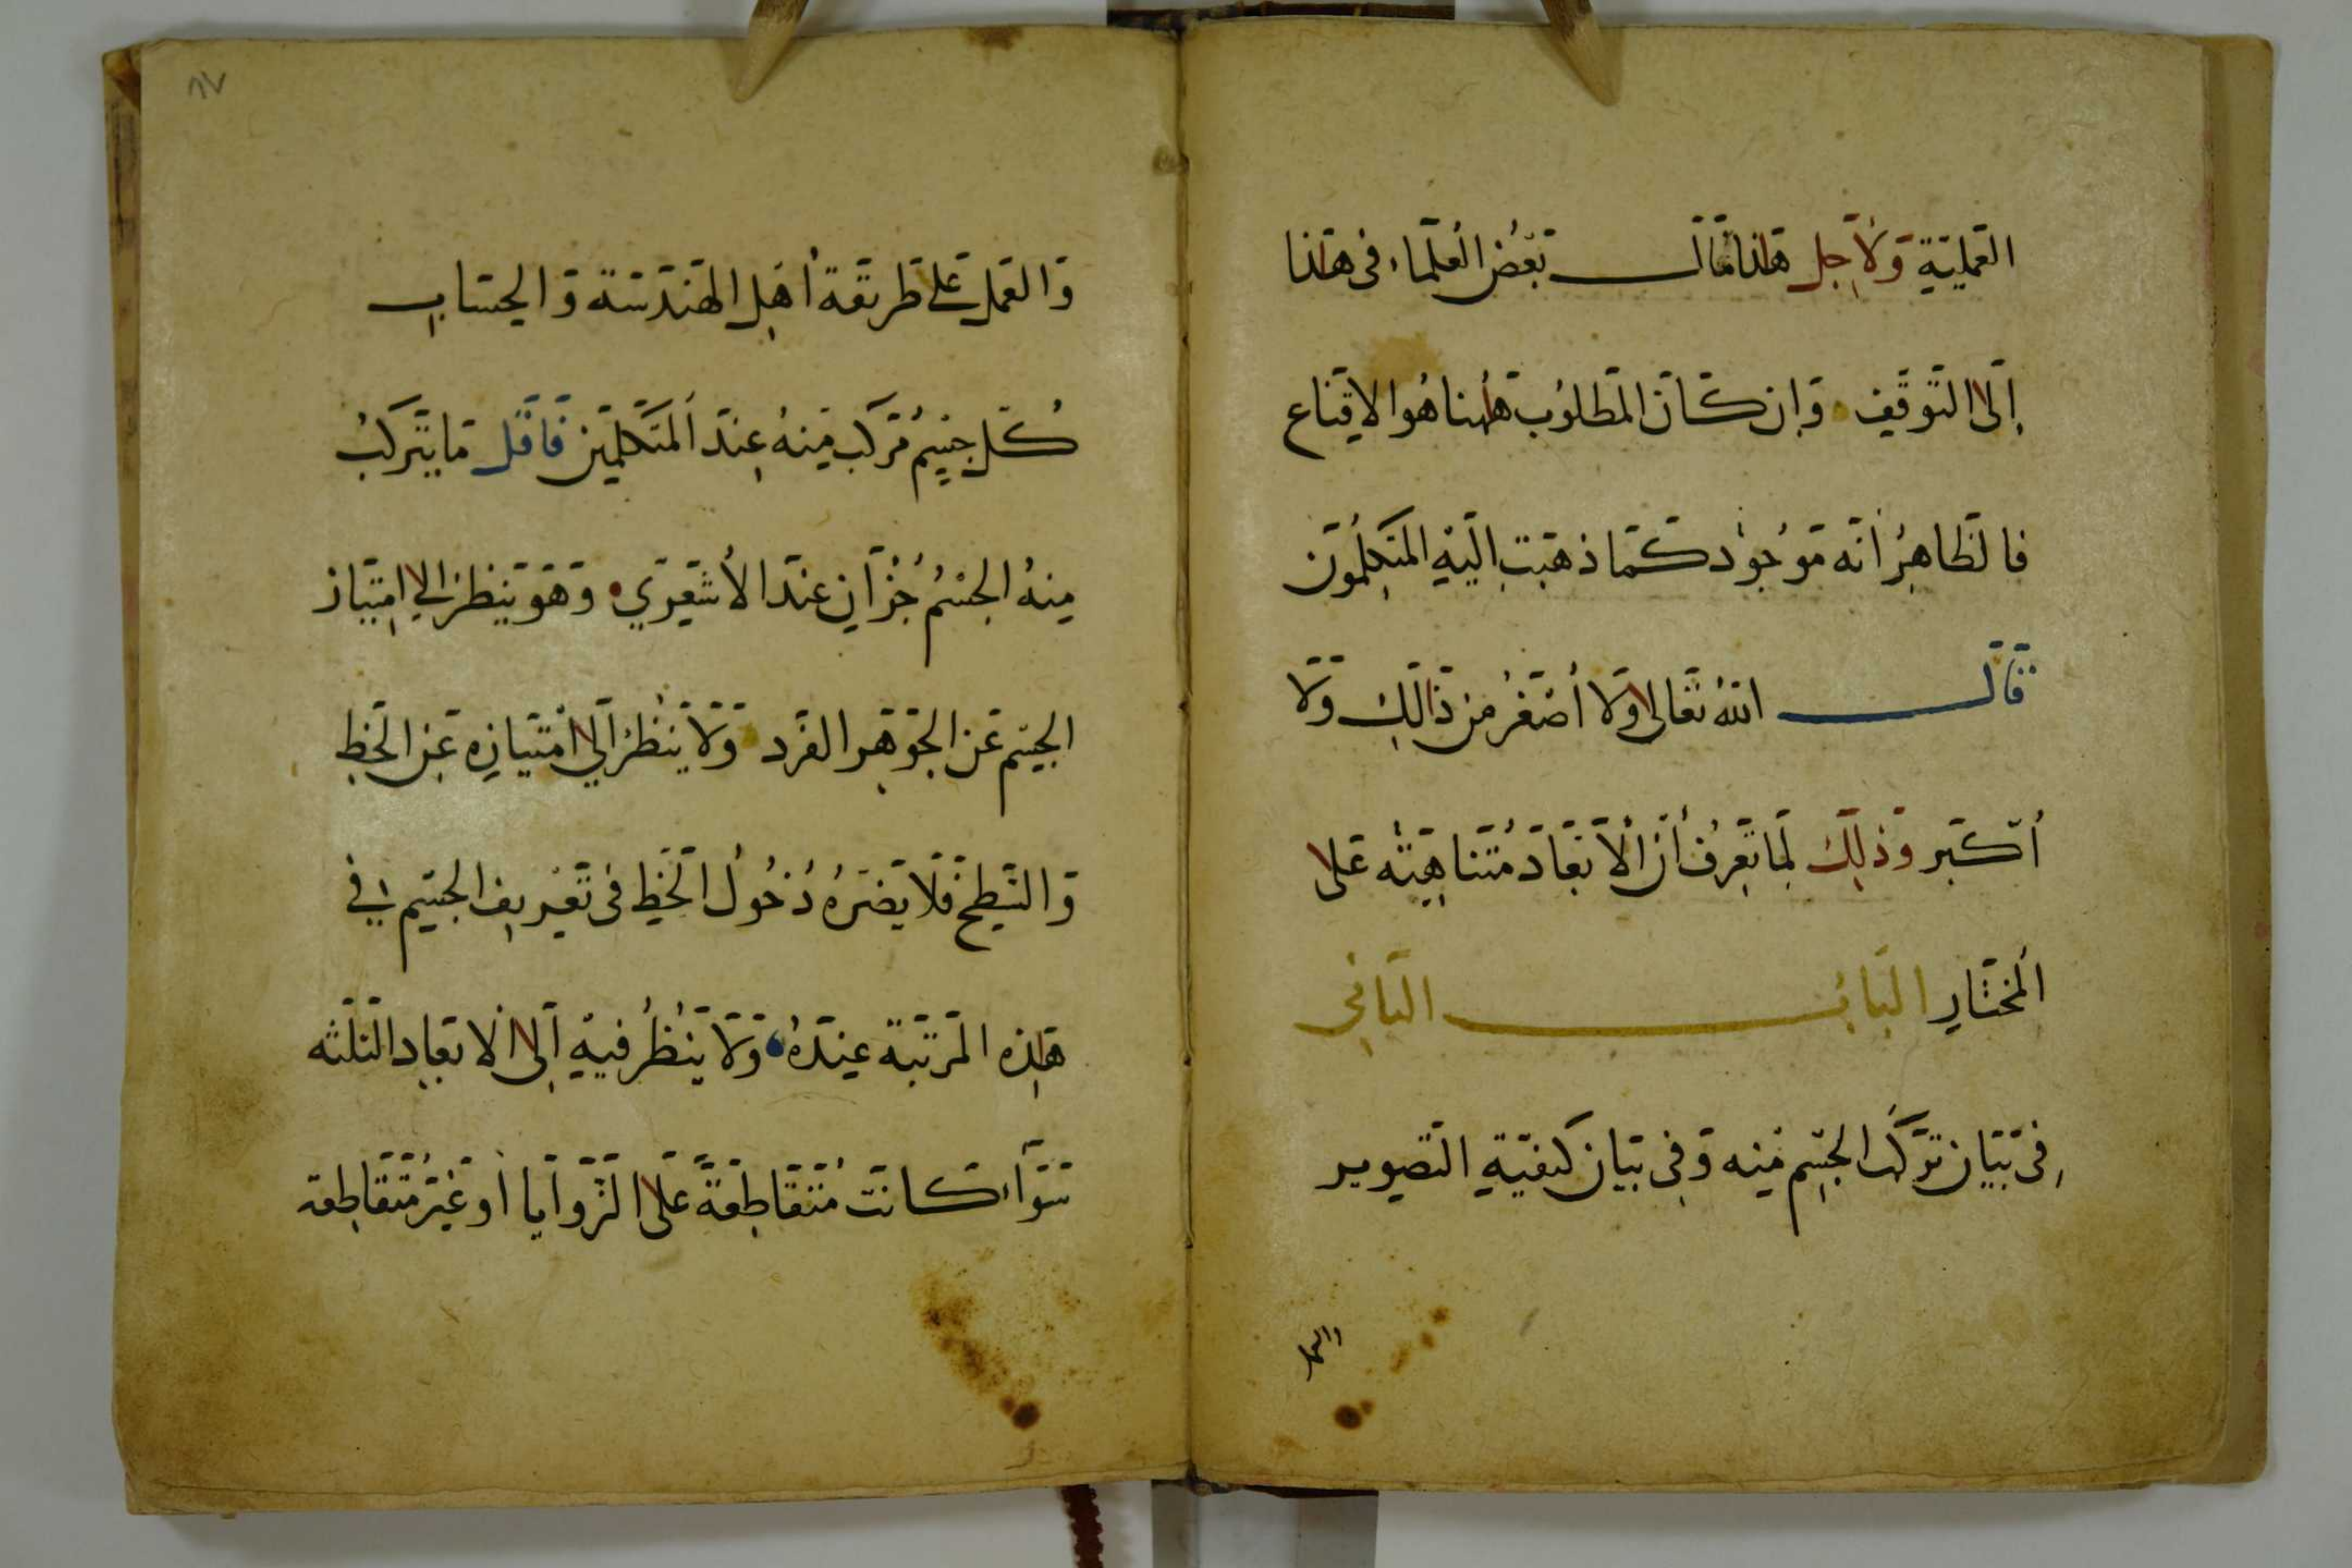 العَمَليَّةِ وَلاَجِل هٰذا قَالَ بَعْضُ العُلَمَاء فى هٰذا
اِلى التَوَقّفِ وَاِن كَانَ المَطلوُب هٰهُنا هُوا الاقِناع
فالظاهِرُ اَنّه مَوجُود كَمَا ذهَبَت اِلَيْهِ المتكِلّموُن
قَالَ اللهُ تَعَالى وَلَا أصْغَرُ مِن ذَالِكَ وَلَا
أكبَر وَذلِكَ لِمَا تَعرِفُ أَن الْاَبعَادَ مُتَناهِيَته عَلى
اَلمختَارِ البَابُ الثانِى
فِى بَيَان تَركّب الجسِم مِنه وَفِى بَيَان كيفيّةِ التَصوِير
والعمل
٨٧
وَالعَمل عَلى طَريقَة أهِل الهَندَسَة وَالحسَابِ
كُل جِسِمٌ مُركَب مِنهُ عِندَ اَلمتَكلّمِين فَاقَل مَا يتَركَبُ
مِنهُ الجسْمُ جُزآنِ عندَ الأشَعرِي وَهَو يَنظر الى امتِيَاز
الجسِم عَن الجَوهَر الفَرد وَلَا يَنْظُر اِلى اْمتيَازِه عَن الخَط
وَالسَطِح فَلَا يَضرَهُ دُخُولُ اَلخَطِ فى تَعرِيفِ الجسِم فى
هٰذِه المَرتَبَة عِندَهُ وَلَا يَنظُر فيهِ اِلى اْلَابعَادِ الثلثه
سَوَآء كانَت مُتقَاطِعَةً عَلى الزَوَايا أَو غَيرُ مُتَقَاطِعة